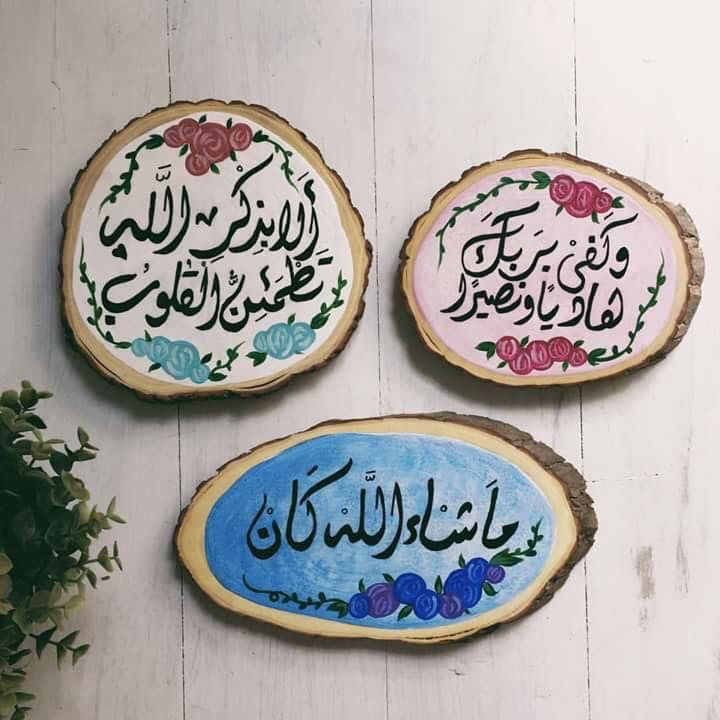 أَلَا بِذِكْرِ اللَّهِ
تَطْمَئِنُّ الْقُلُوبُ
وَكَفَىْ بِرَبِّكَ
هَادِيًا وَنَصِيرًا
مَا شَاء اللَّه كَانْ